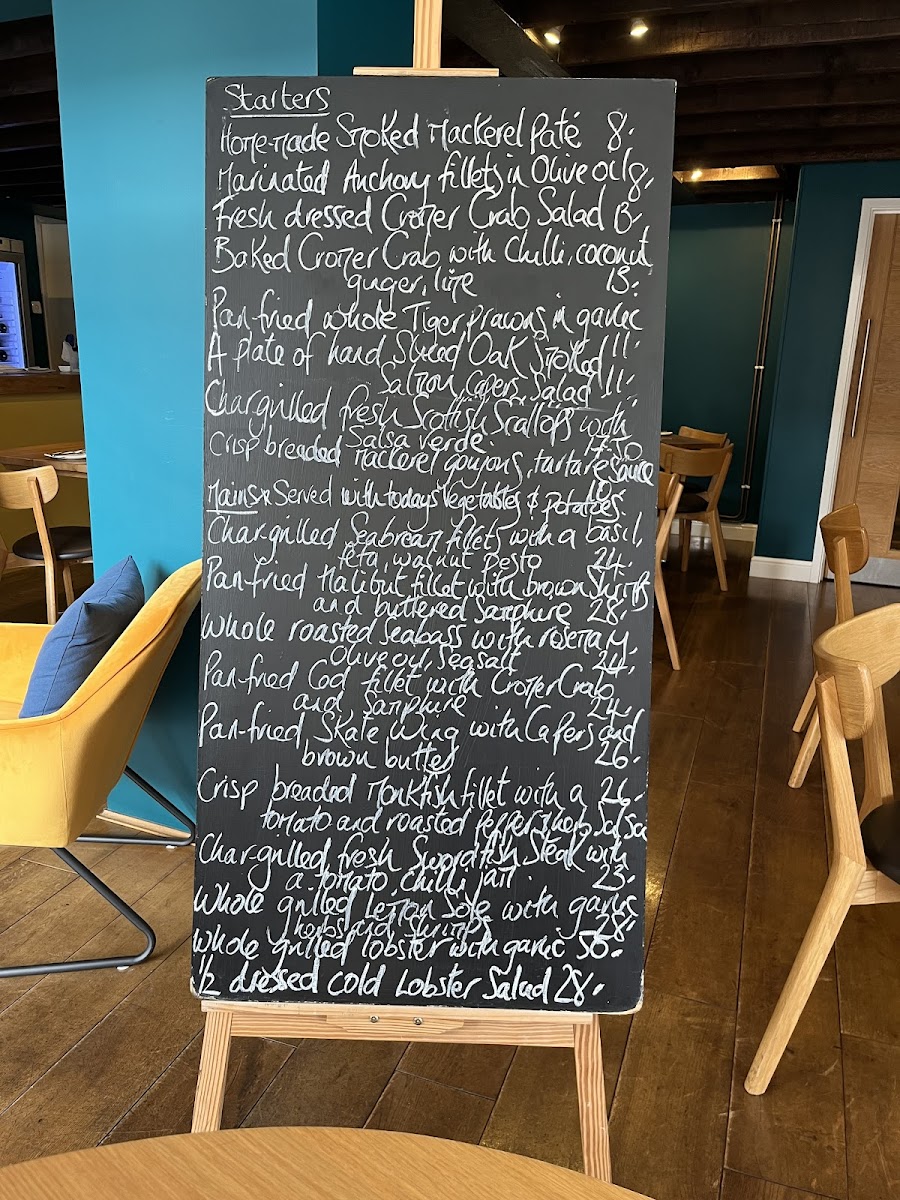 Starters
Homemade Smoked Mackerel Paté 8.
Marinated Anchovy fillets in Olive oil 8.
Fresh dressed Cromer Crab Salad 13.
Baked Cromer Crab with Chilli, coconut
ginger, lime 13.
Pan fried whole Tiger prawns in garlic
11.
A plate of hand Sliced Oak Smoked
Salmon, Capers, Salad 11.
Chargrilled fresh Scottish Scallops with
Salsa verde. 17.50
Crisp breaded Mackerel goujons, tartare sauce
10.
Mains Served with todays vegetables & potatoes.
Chargrilled Seabream fillets with a basil,
feta, walnut pesto 24.
Pan-fried Halibut fillet with brown Shrimps
and buttered Samphire 28.
Whole roasted Seabass with rosemary,
Olive oil, Seasalt 24.
Pan-fried Cod fillet with Cromer Crab
and Samphire 24.
Pan-fried Skate Wing with Capers and
brown butter 26.
Crisp breaded Monkfish fillet with a 26.
tomato and roasted pepper, herb Salsa
Chargrilled fresh Swordfish Steak with
a tomato, chilli, jam. 23.
Whole grilled Lemon Sole with garlic
herbs and Shrimps 28.
Whole grilled lobster with garlic 50.
1/2 dressed cold Lobster Salad 28.